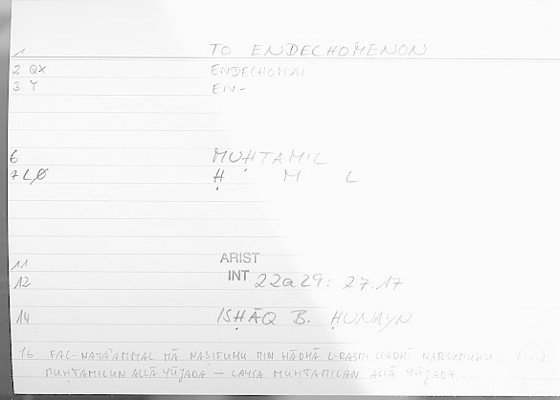 1 TO ENDECHOMENON
2 QX ENDECHOMAI
3 Y EN-
6 MUḤTAMIL
7 LØ Ḥ M L
11 ARIST
12 INT 22a29: 27.17
14 ISḤĀQ B. ḤUNAYN
16 FAL-NATA'AMMAL MĀ NAṢIFUHU MIN HĀDHĀ L-RASMI LLADHĪ NARSUMUHU: (...)
MUḤTAMILUN ALLĀ YŪJADA – LAYSA MUḤTAMILAN ALLĀ YŪJADA...